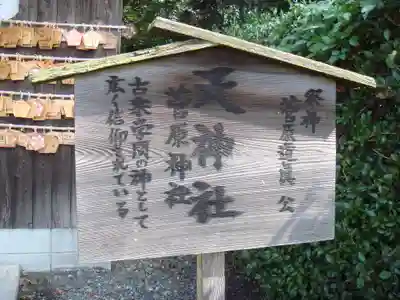 祭神
菅原道真公
天神社
菅原神社
古来学問の神として
広く信仰されている